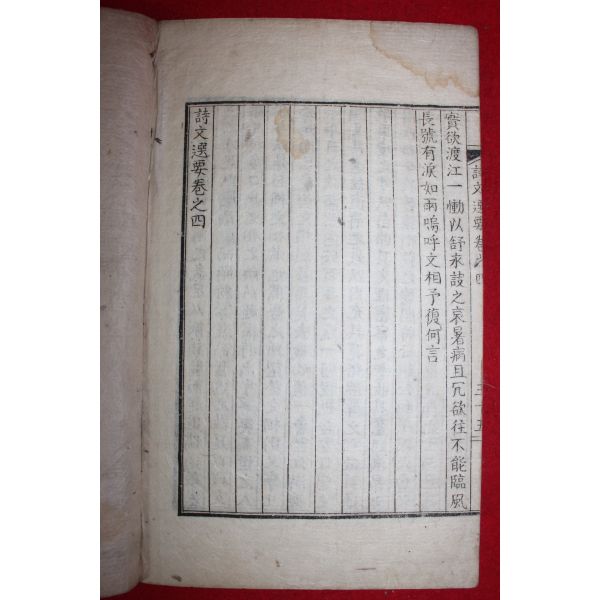 詩文選要卷之四
三十五
實欲渡江一慟以舒永訣之哀暑病且冗欲往不能臨風
長號有淚如雨嗚呼文相予復何言
詩文選要卷之四